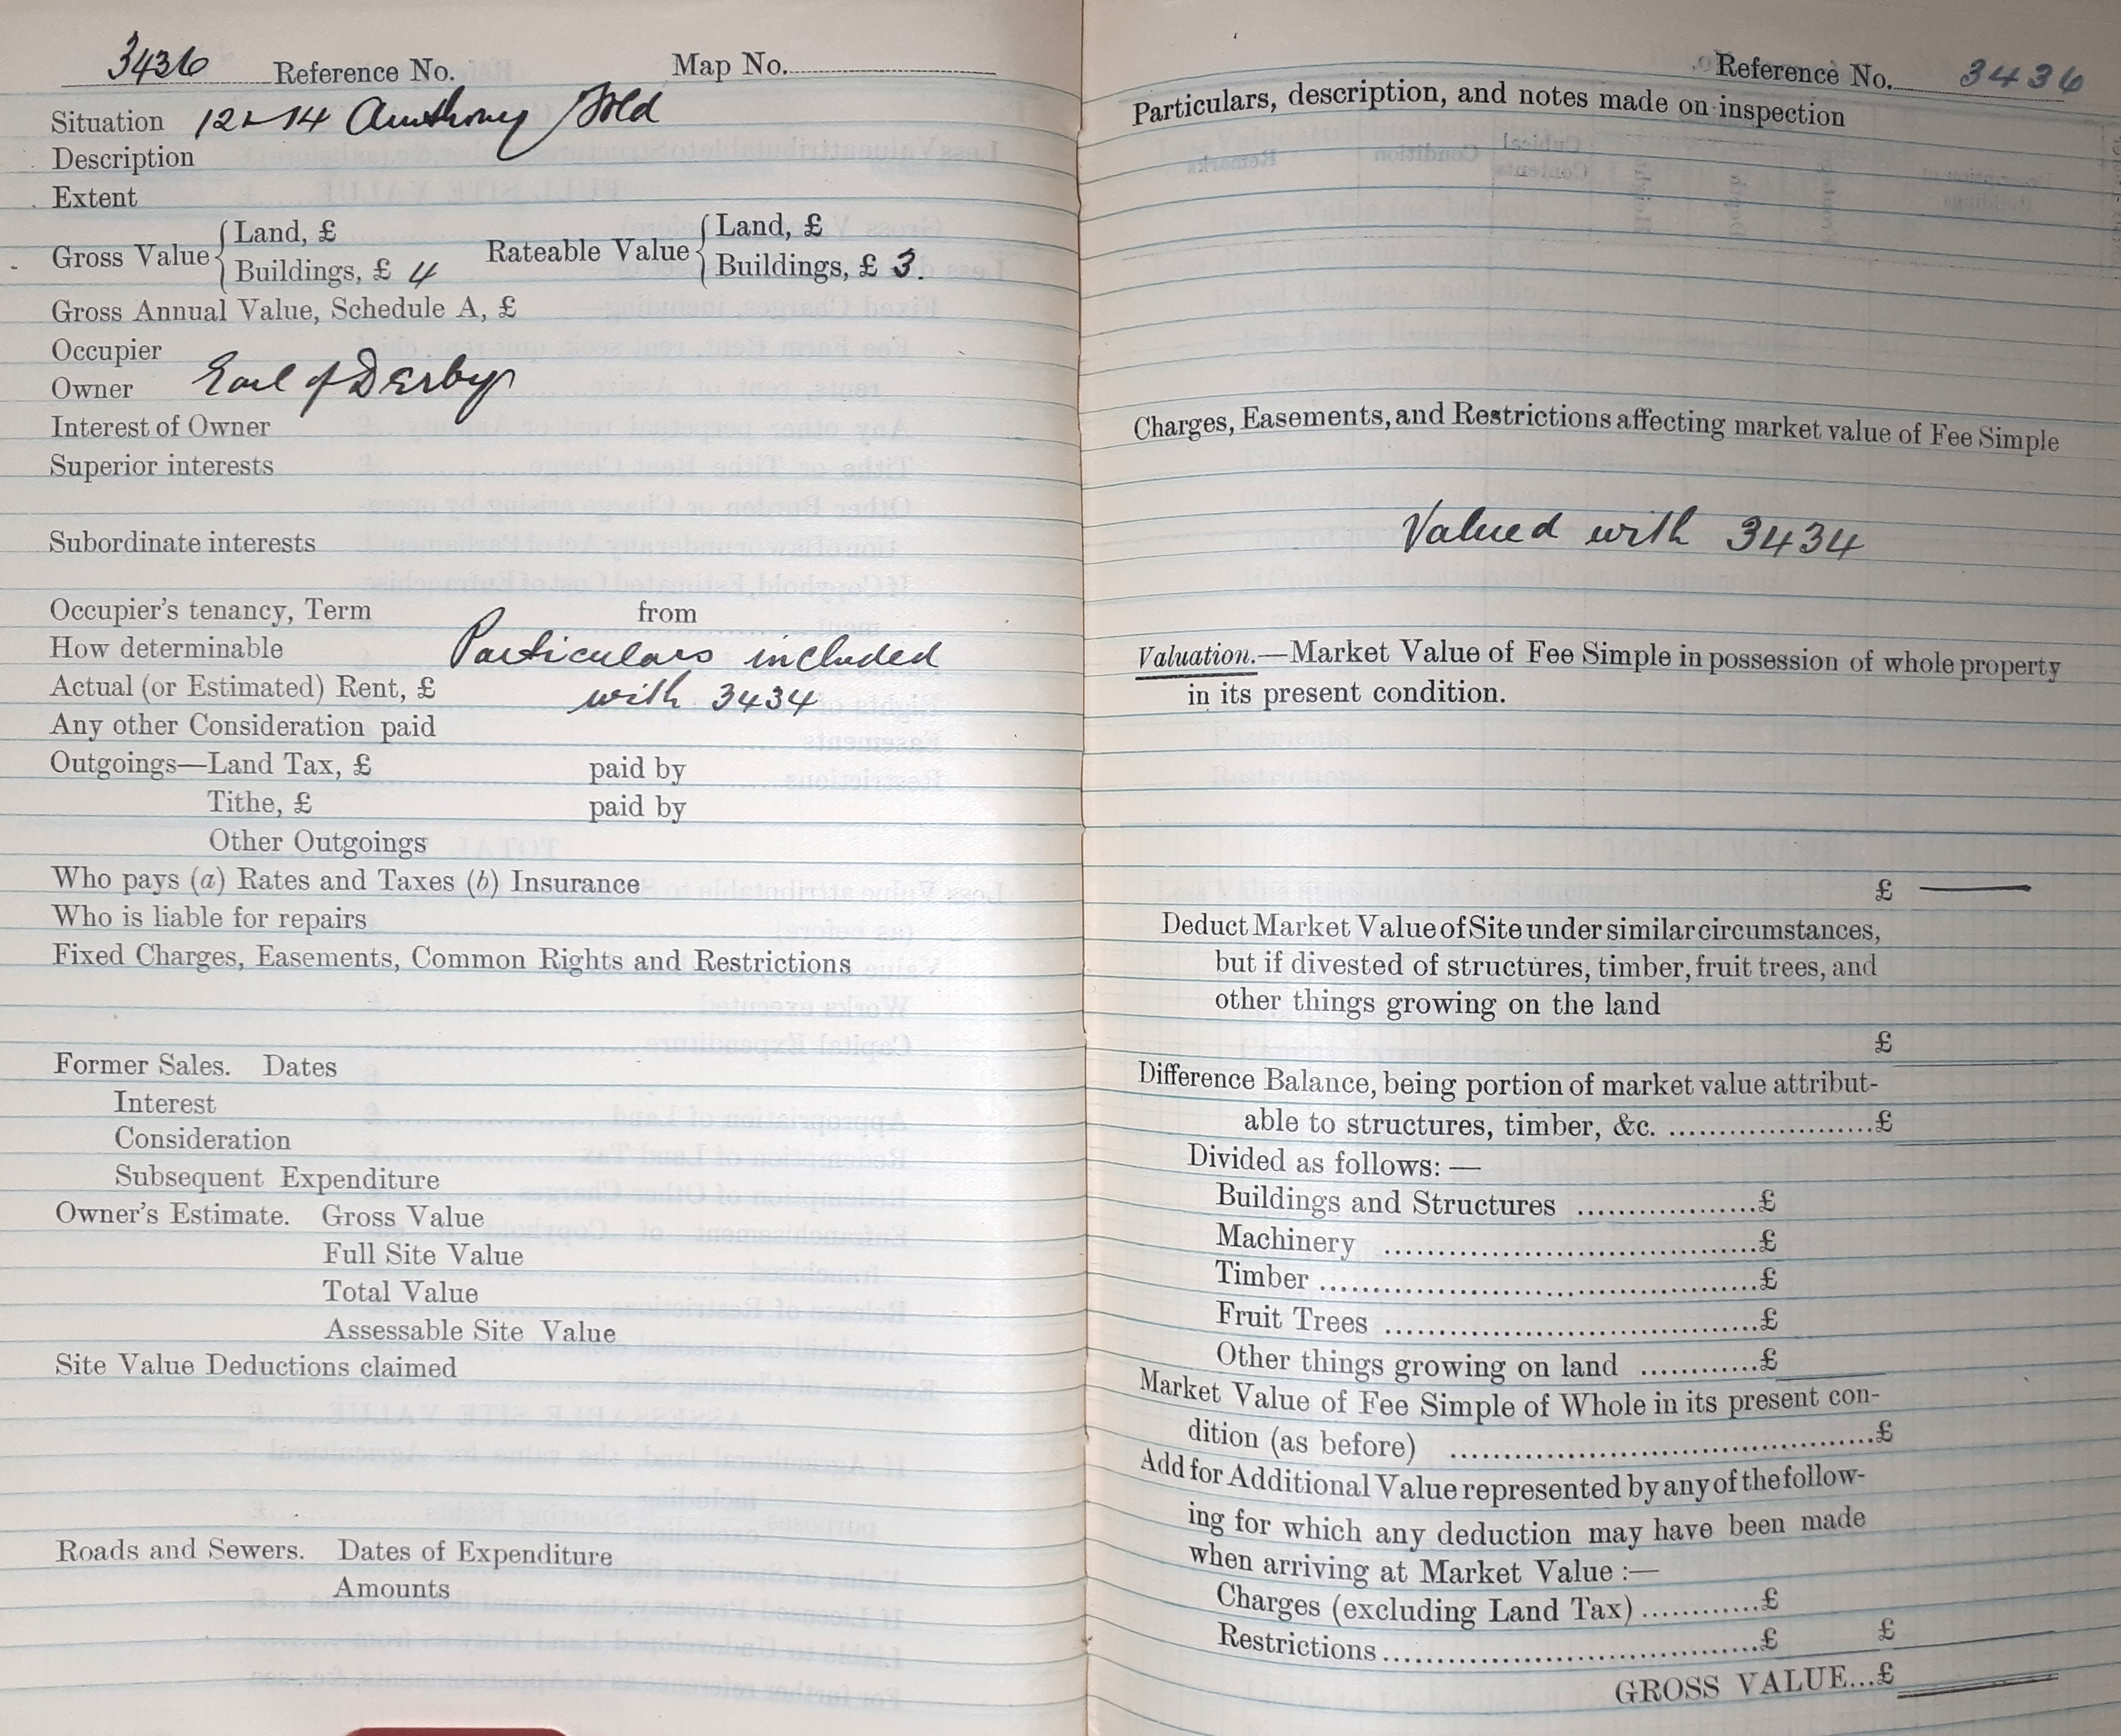 3436 Reference No. Map No.
Situation 12 & 14 Anthony Fold
Description
Extent
Gross Value { Land, £ Rateable Value { Land, £
Buildings, £ 4 Buildings, £ 3.
Gross Annual Value, Schedule A, £
Occupier
Owner Earl of Derby
Interest of Owner
Superior interests
Subordinate interests
Occupier's tenancy, Term from
How determinable Particulars included
Actual (or Estimated) Rent, £ with 3434
Any other Consideration paid
Outgoings—Land Tax, £ paid by
Tithe, £ paid by
Other Outgoings
Who pays (a) Rates and Taxes (b) Insurance
Who is liable for repairs
Fixed Charges, Easements, Common Rights and Restrictions
Former Sales. Dates
Interest
Consideration
Subsequent Expenditure
Owner's Estimate. Gross Value
Full Site Value
Total Value
Assessable Site Value
Site Value Deductions claimed
Roads and Sewers. Dates of Expenditure
Amounts
Reference No. 3436
Particulars, description, and notes made on inspection
Charges, Easements, and Restrictions affecting market value of Fee Simple
Valued with 3434
Valuation.—Market Value of Fee Simple in possession of whole property
in its present condition.
£ —
Deduct Market Value of Site under similar circumstances,
but if divested of structures, timber, fruit trees, and
other things growing on the land
£
Difference Balance, being portion of market value attribut-
able to structures, timber, &c. ......................£
Divided as follows: —
Buildings and Structures ..................£
Machinery ....................................£
Timber ..........................................£
Fruit Trees ....................................£
Other things growing on land ............£
Market Value of Fee Simple of Whole in its present con-
dition (as before) ..........................................£
Add for Additional Value represented by any of the follow-
ing for which any deduction may have been made
when arriving at Market Value :—
Charges (excluding Land Tax) ............£
Restrictions ....................................£ £
GROSS VALUE...£